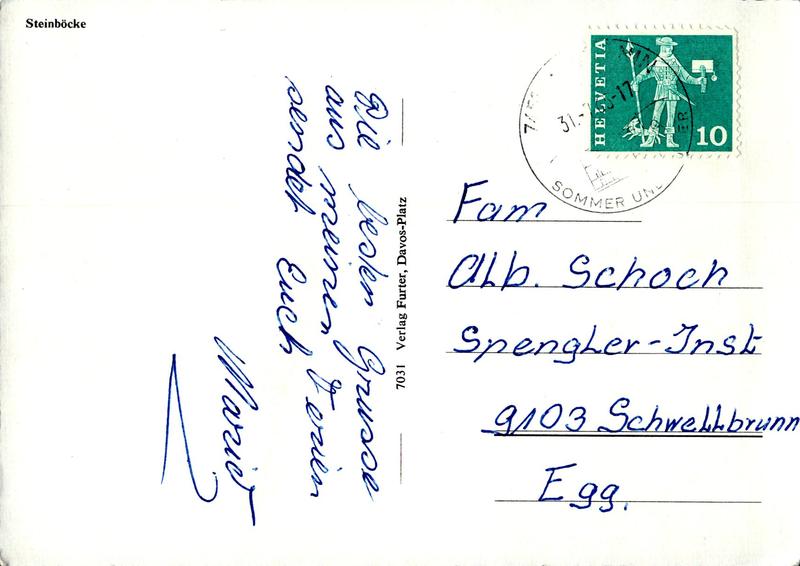 Steinböcke
Die besten Grüsse
aus meinen Ferien
sendet Euch
7031 Verlag Furter, Davos-Platz
HELVETIA
10
31.
-17
SOMMER UND
Fam
Alb. Schoch
Spengler-Inst
9103 Schwellbrunn
Egg.